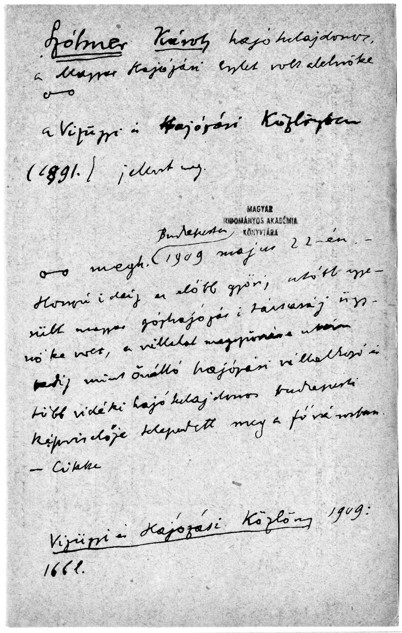 Károly hajótulajdonos,
a Magyar Hajózási Egylet volt alelnöke
a Vízügyi és Hajózási Közlönyben
(1891.) jelent meg.
MAGYAR
TUDOMÁNYOS AKADÉMIA
KÖNYVTÁRA
Budapesten
megh. (1909 május 22-én. –
Hosszú ideig az előbb győri, utóbb egye-
sült magyar gőzhajózási társaság ügy-
nöke volt, a vállalat megszűnése után
pedig mint önálló hajózási vállalkozó és
több vidéki hajótulajdonos budapesti
képviselője telepedett meg a fővárosban.
– Cikke
Vízügyi és Hajózási Közlöny 1909:
166 l.